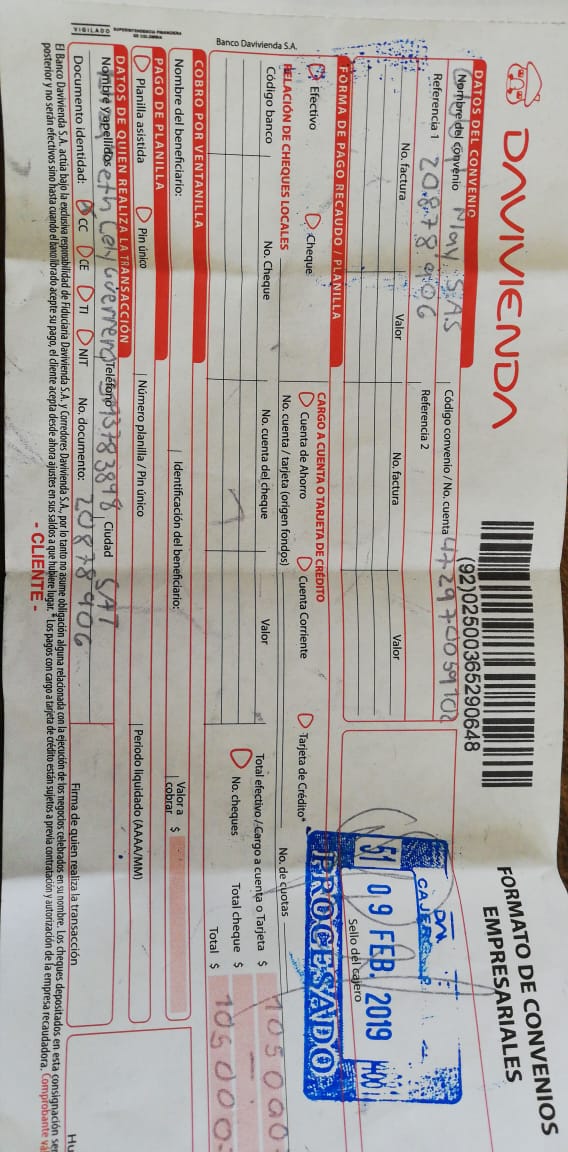 DAVIVIENDA
FORMATO DE CONVENIOS
EMPRESARIALES
(92)02500365290648
DATOS DEL CONVENIO
Nombre del convenio May SAS
Código convenio / No. cuenta
Referencia 1 20878906
Referencia 2
No. factura Valor No. factura Valor
DA
CAJERO
51 09 FEB. 2019
Sello del cajero
PROCESADO
FORMA DE PAGO RECAUDO / PLANILLA
Efectivo Cheque
CARGO A CUENTA O TARJETA DE CRÉDITO
Cuenta de Ahorro Cuenta Corriente Tarjeta de Crédito*
No. cuenta / tarjeta (origen fondos) No. de cuotas
RELACIÓN DE CHEQUES LOCALES
Código banco No. Cheque No. cuenta del cheque Valor
Total efectivo / Cargo a cuenta o Tarjeta $ 105000
No. cheques Total cheque $
Total $ 105000
COBRO POR VENTANILLA
Nombre del beneficiario: Identificación del beneficiario: Valor a cobrar $
PAGO DE PLANILLA
Planilla asistida Pin único Número planilla / Pin único Periodo liquidado (AAAA/MM)
DATOS DE QUIEN REALIZA LA TRANSACCIÓN
Nombre y apellidos Guerrero Teléfono Ciudad
Documento identidad: CC CE TI NIT No. documento: 20878906
Firma de quien realiza la transacción
El Banco Davivienda S.A. actúa bajo la exclusiva responsabilidad de Fiduciaria Davivienda S.A. y Corredores Davivienda S.A., por lo tanto no asume obligación alguna relacionada con la ejecución de los negocios celebrados en su nombre. Los cheques depositados en esta consignación
posterior y no serán efectivos sino hasta cuando el banco librado acepte su pago, el cliente acepta desde ahora ajustes en sus saldos a que hubiere lugar. *Los pagos con cargo a tarjeta de crédito están sujetos a previa contratación y autorización de la empresa recaudadora. Comprobante
- CLIENTE -
Banco Davivienda S.A.
VIGILADO SUPERINTENDENCIA FINANCIERA DE COLOMBIA